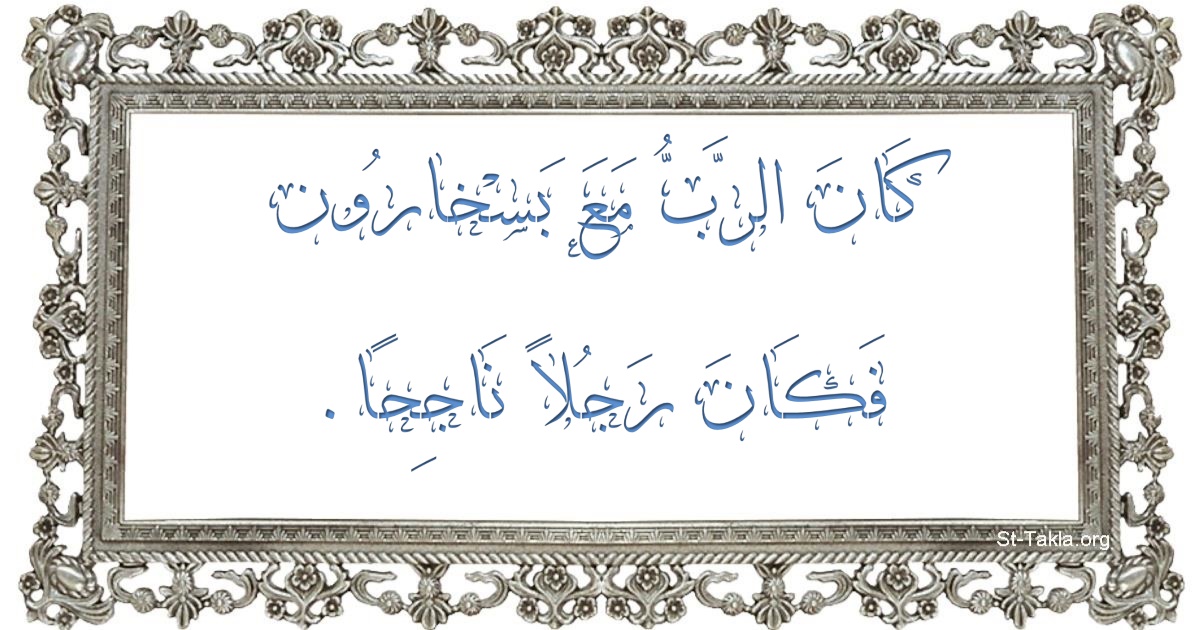 كَانَ الرَّبُّ مَعَ بَسْخارُون
فَكَانَ رَجُلاً نَاجِحًا .
St-Takla.org